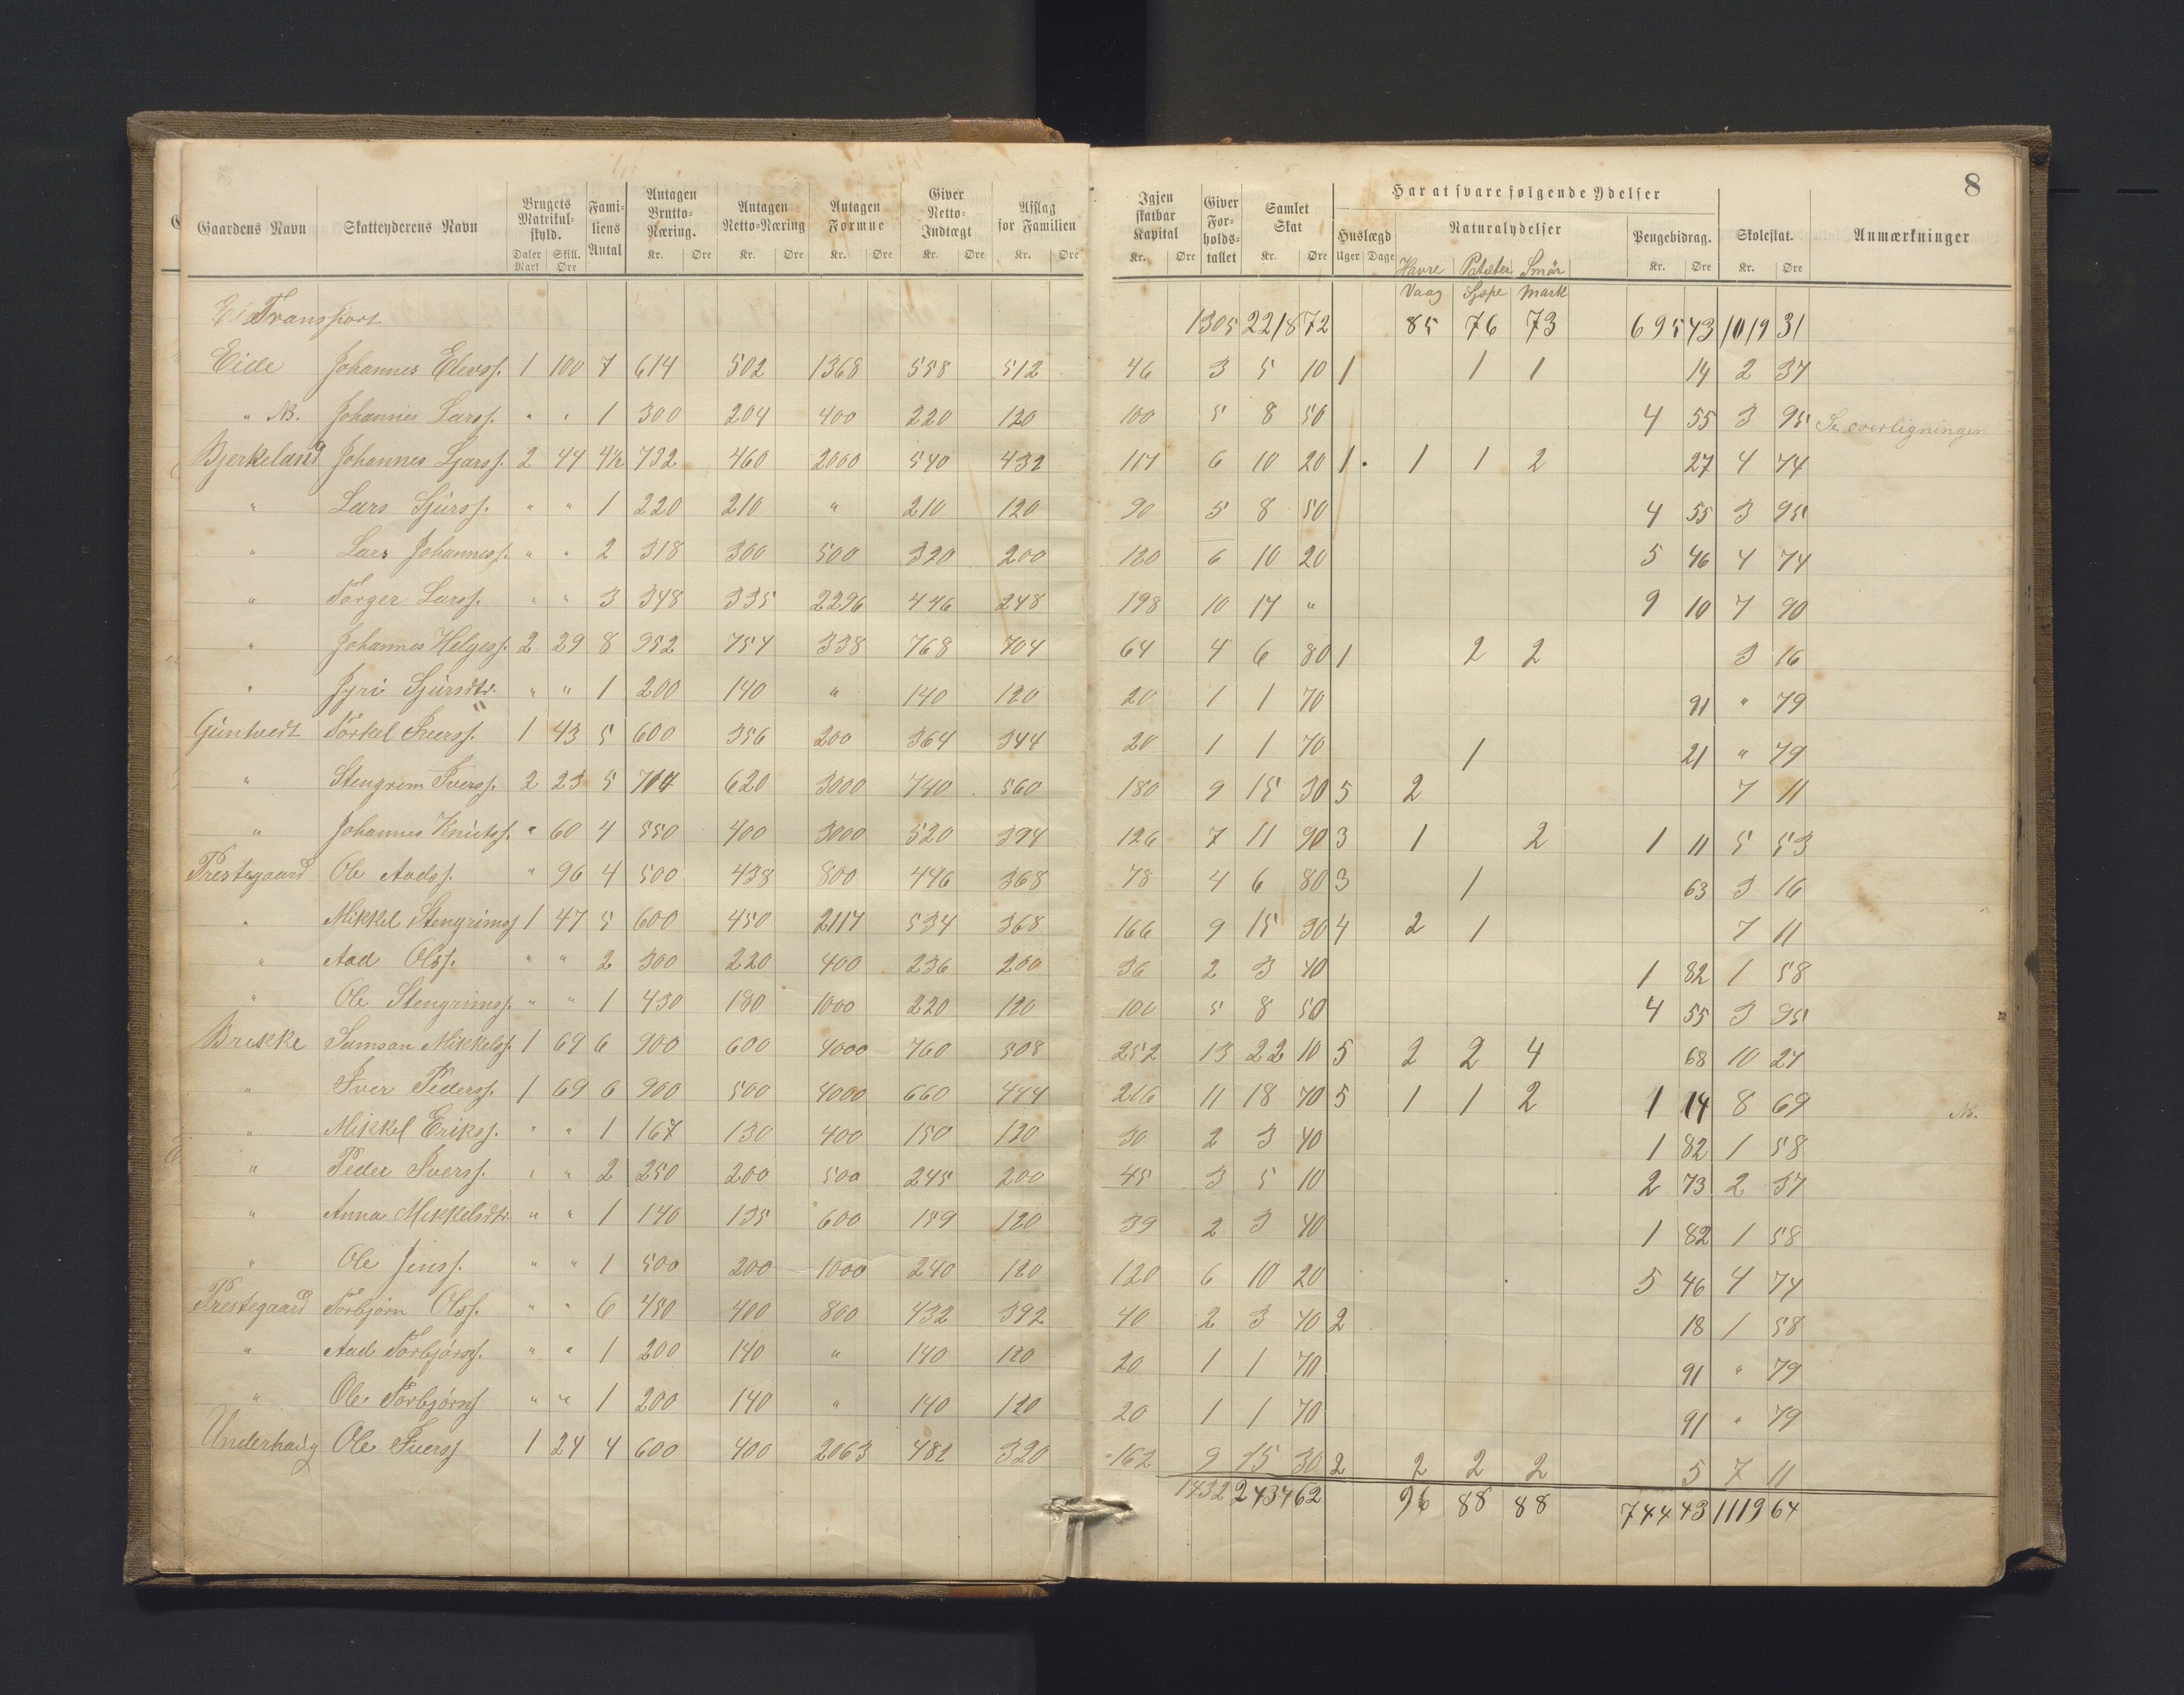 8
Gaardens Navn | Skatteyderens Navn | Brugets Matrikulskyld. Daler Mark | Skill. Øre | Familiens Antal | Antagen Brutto-Næring. Kr. Øre | Antagen Netto-Næring Kr. Øre | Antagen Formue Kr. Øre | Giver Netto-Indtægt Kr. Øre | Afslag for Familien Kr. Øre | Igjen skatbar Kapital Kr. Øre | Giver Forholdstallet | Samlet Skat Kr. Øre | Har at svare følgende Ydelser | Huslægd Uger Dage | Naturalydelser Havre Poteter Smör | Pengebidrag. Kr. Øre | Skoleskat. Kr. Øre | Anmærkninger
Vaag Skjæpe Mark
Transport 1305 2218 72 85 76 73 695 43 1019 31
Eide Johannes Elevss. 1 100 7 614 502 1368 558 512 46 3 5 10 1 1 1 14 2 37
" NB. Johannes Larss. " " 1 300 204 400 220 120 100 5 8 50 4 55 3 95 Se overligningen
Bjerkeland Johannes Larss. 2 44 4½ 732 460 2000 540 432 117 6 10 20 1 1 1 2 27 4 74
" Lars Sjurss. " " 1 220 210 " 210 120 90 5 8 50 4 55 3 95
" Lars Johanness. " " 2 318 300 500 320 200 120 6 10 20 5 46 4 74
" Torger Larss. " " 3 348 335 2296 446 248 198 10 17 " 9 10 7 90
" Johannes Helgess. 2 29 8 952 754 338 768 704 64 4 6 80 1 2 2 3 16
" Jyri Sjursdtr. " " 1 200 140 " 140 120 20 1 1 70 91 " 79
Gimhvedt Torkel Iverss. 1 43 5 600 356 200 364 344 20 1 1 70 1 21 " 79
" Stengrim Iverss. 2 23 5 700 620 3000 740 560 180 9 15 30 5 2 7 11
" Johannes Knutss. " 60 4 550 400 3000 520 394 126 7 11 90 3 1 2 1 11 5 53
Prestegaard Ole Aadss. " 96 4 500 438 800 446 368 78 4 6 80 3 1 63 3 16
" Mikkel Stengrimss 1 47 5 600 450 2117 534 368 166 9 15 30 4 2 1 7 11
" Aad Olss. " " 2 300 220 400 236 200 36 2 3 40 1 82 1 58
" Ole Stengrimss. " " 1 430 180 1000 220 120 100 5 8 50 4 55 3 95
Brekke Samson Mikkelss. 1 69 6 900 600 4000 760 508 252 13 22 10 5 2 2 4 68 10 27
" Iver Pederss. 1 69 6 900 500 4000 660 444 216 11 18 70 5 1 1 2 1 14 8 69 NB.
" Mikkel Erikss. " " 1 167 130 400 150 120 30 2 3 40 1 82 1 58
" Peder Iverss. " " 2 250 200 500 245 200 45 3 5 10 2 73 2 37
" Anna Mikkelsdtr " " 1 140 135 600 159 120 39 2 3 40 1 82 1 58
" Ole Jenss. " " 1 500 200 1000 240 120 120 6 10 20 5 46 4 74
Prestegaard Torbjørn Olss. " " 6 450 400 800 432 392 40 2 3 40 2 18 1 58
" Aad Torbjörss. " " 1 200 140 " 140 120 20 1 1 70 91 " 79
" Ole Torbjörss " " 1 200 140 " 140 120 20 1 1 70 91 " 79
Underhaug Ole Iverss 1 24 4 600 400 2063 482 320 162 9 15 30 2 2 2 2 5 7 11
1432 2434 62 96 88 88 744 43 1119 64